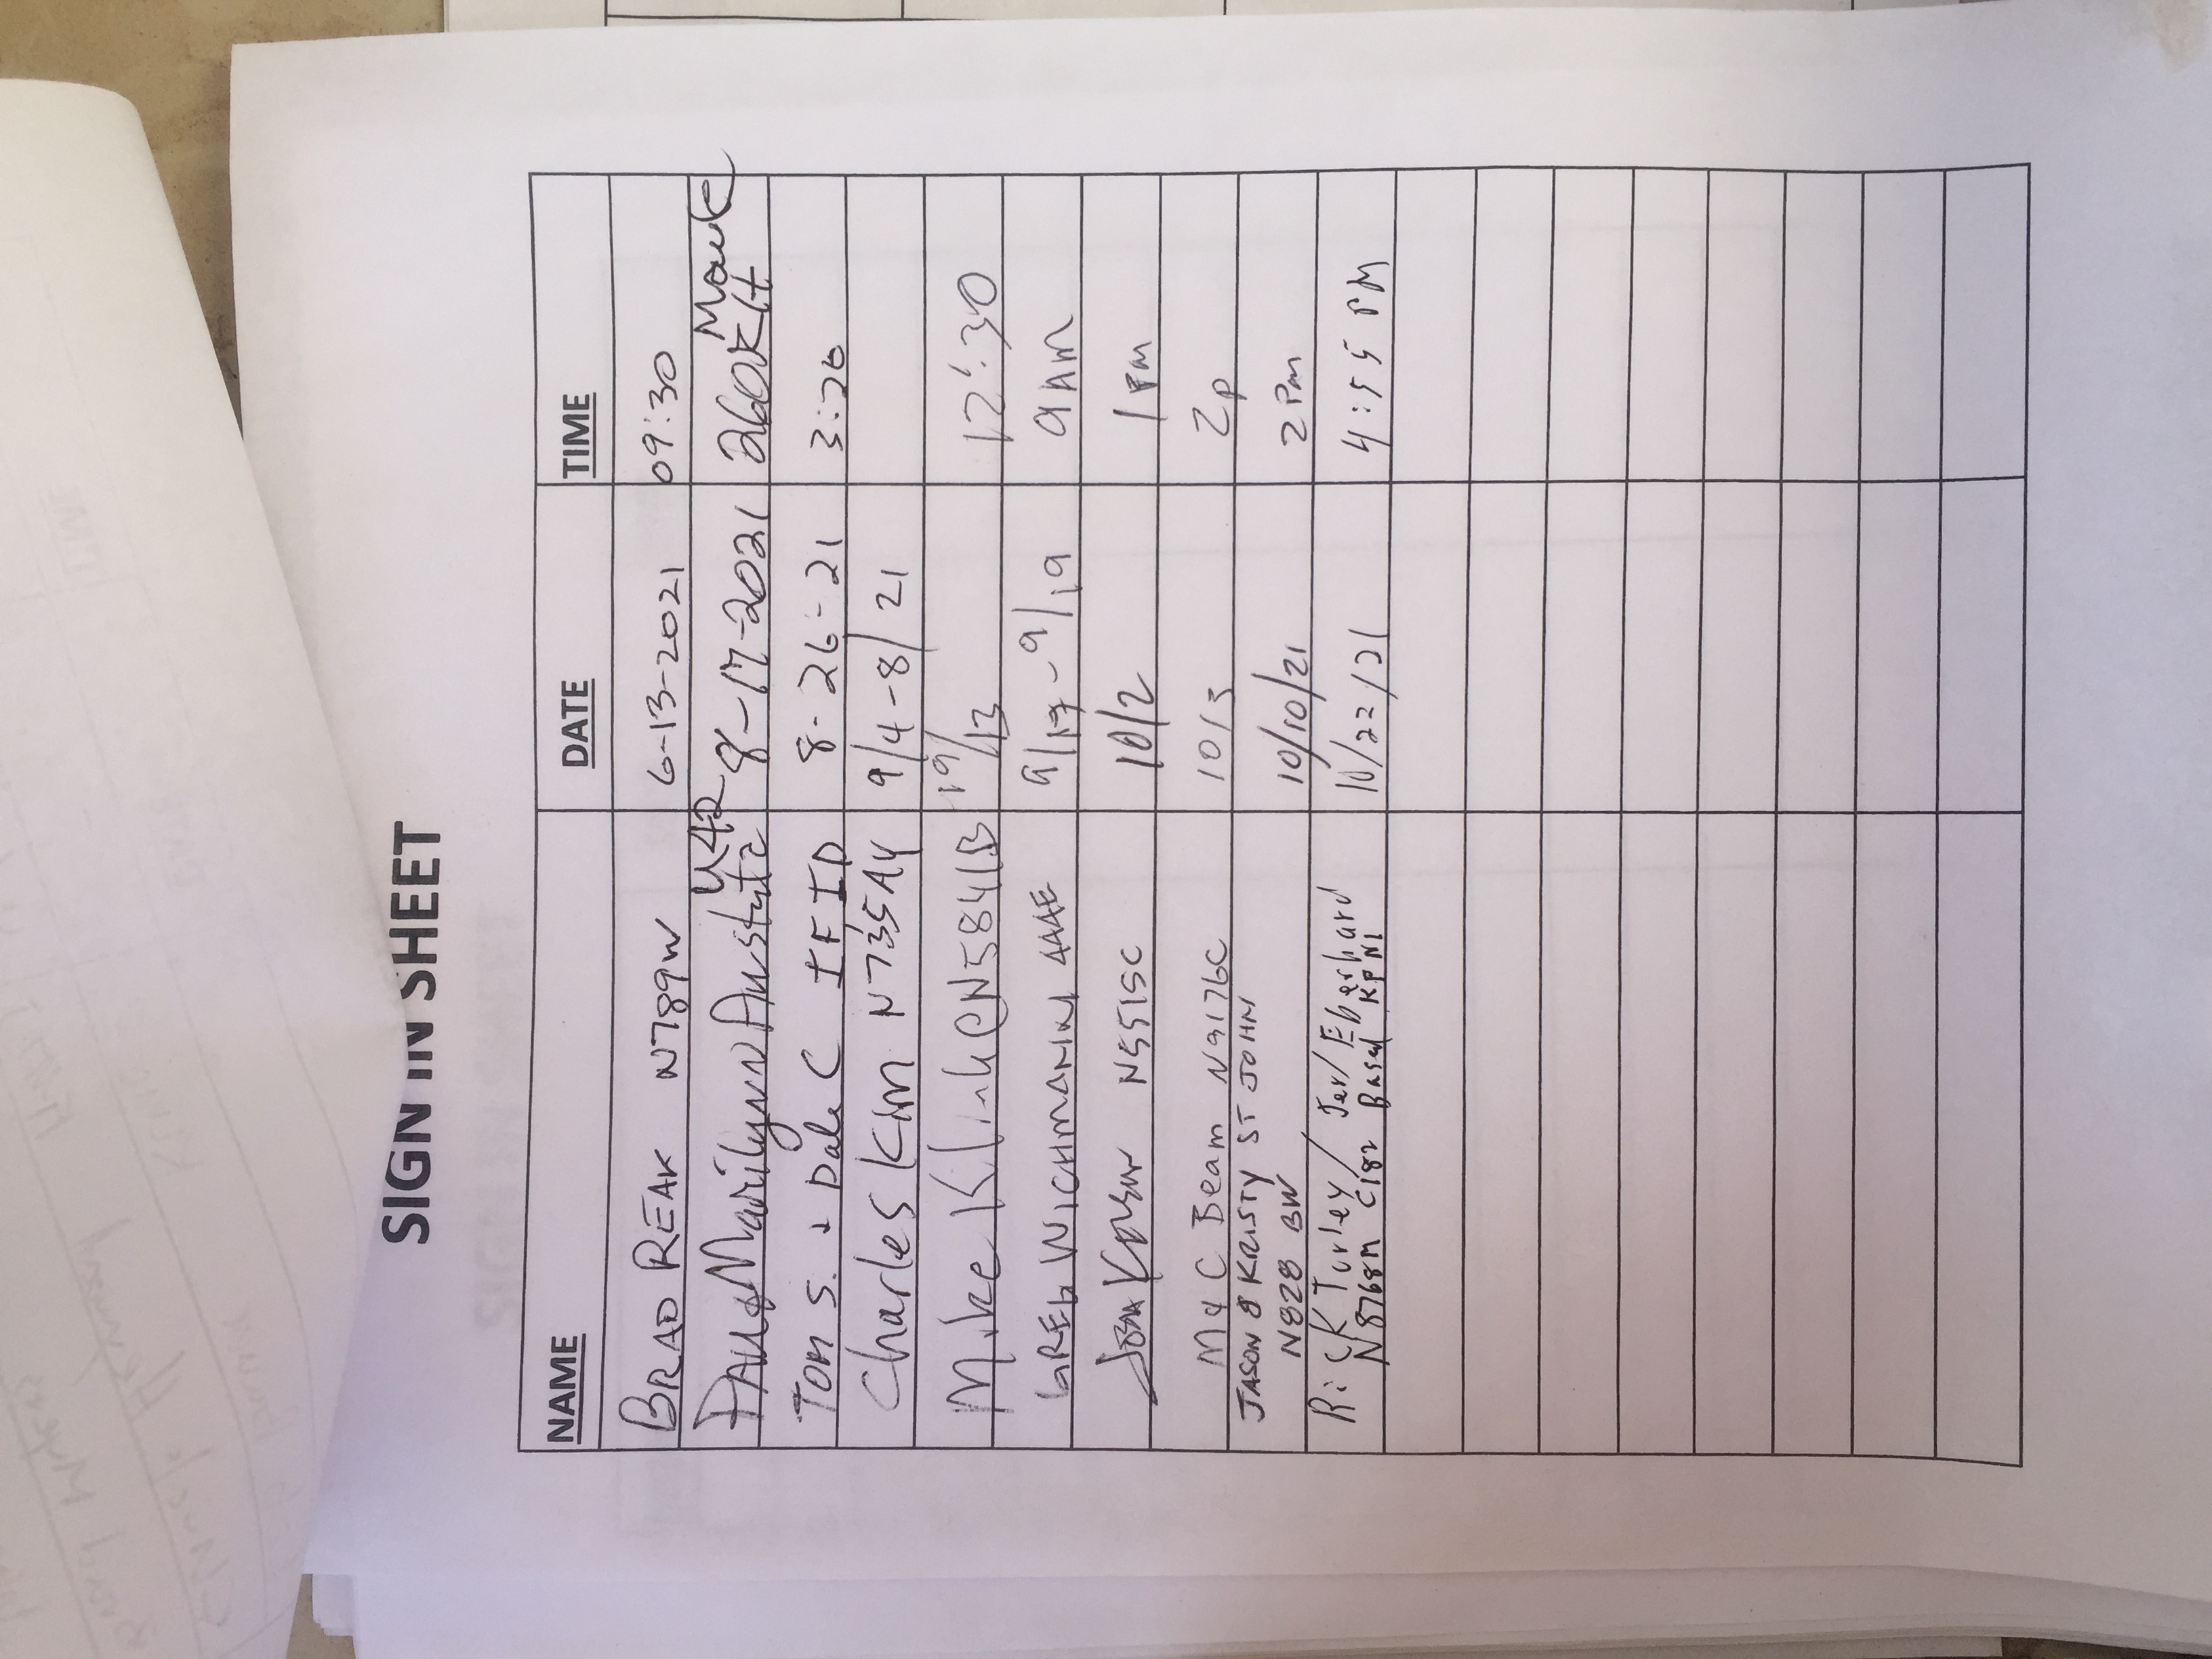 SIGN IN SHEET
NAME DATE TIME
BRAD REAK N789W 6-13-2021 09:30
Marilynn Austin U42 8-17-2021 260 Kitt Mark
TOM S. + Dale C IFID 8-26-21 3:20
Charles Kim N735AY 9/4-8/21
Mike Klink @N5841B 19/13 12:30
GREG WICHMANN AAAE 9/17-9/19 9AM
N5515C 10/2 1PM
M4C Beam N9176C 10/3 2p
JASON & KRISTY ST JOHN
N828BW 10/10/21 2PM
Rick Turley / Jer/Eberhard 10/22/21 4:55 PM
N8768M C182 Based KPNI